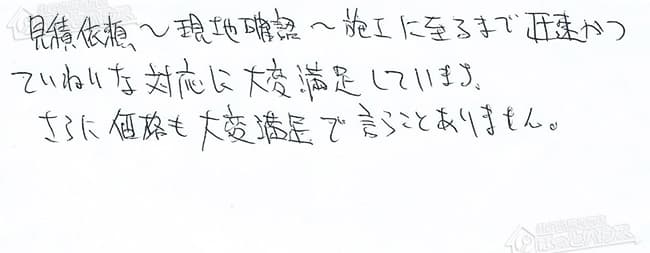 見積依頼～現地確認～施工に至るまで迅速かつ
ていねいな対応に大変満足しています。
さらに価格も大変満足で言うことありません。